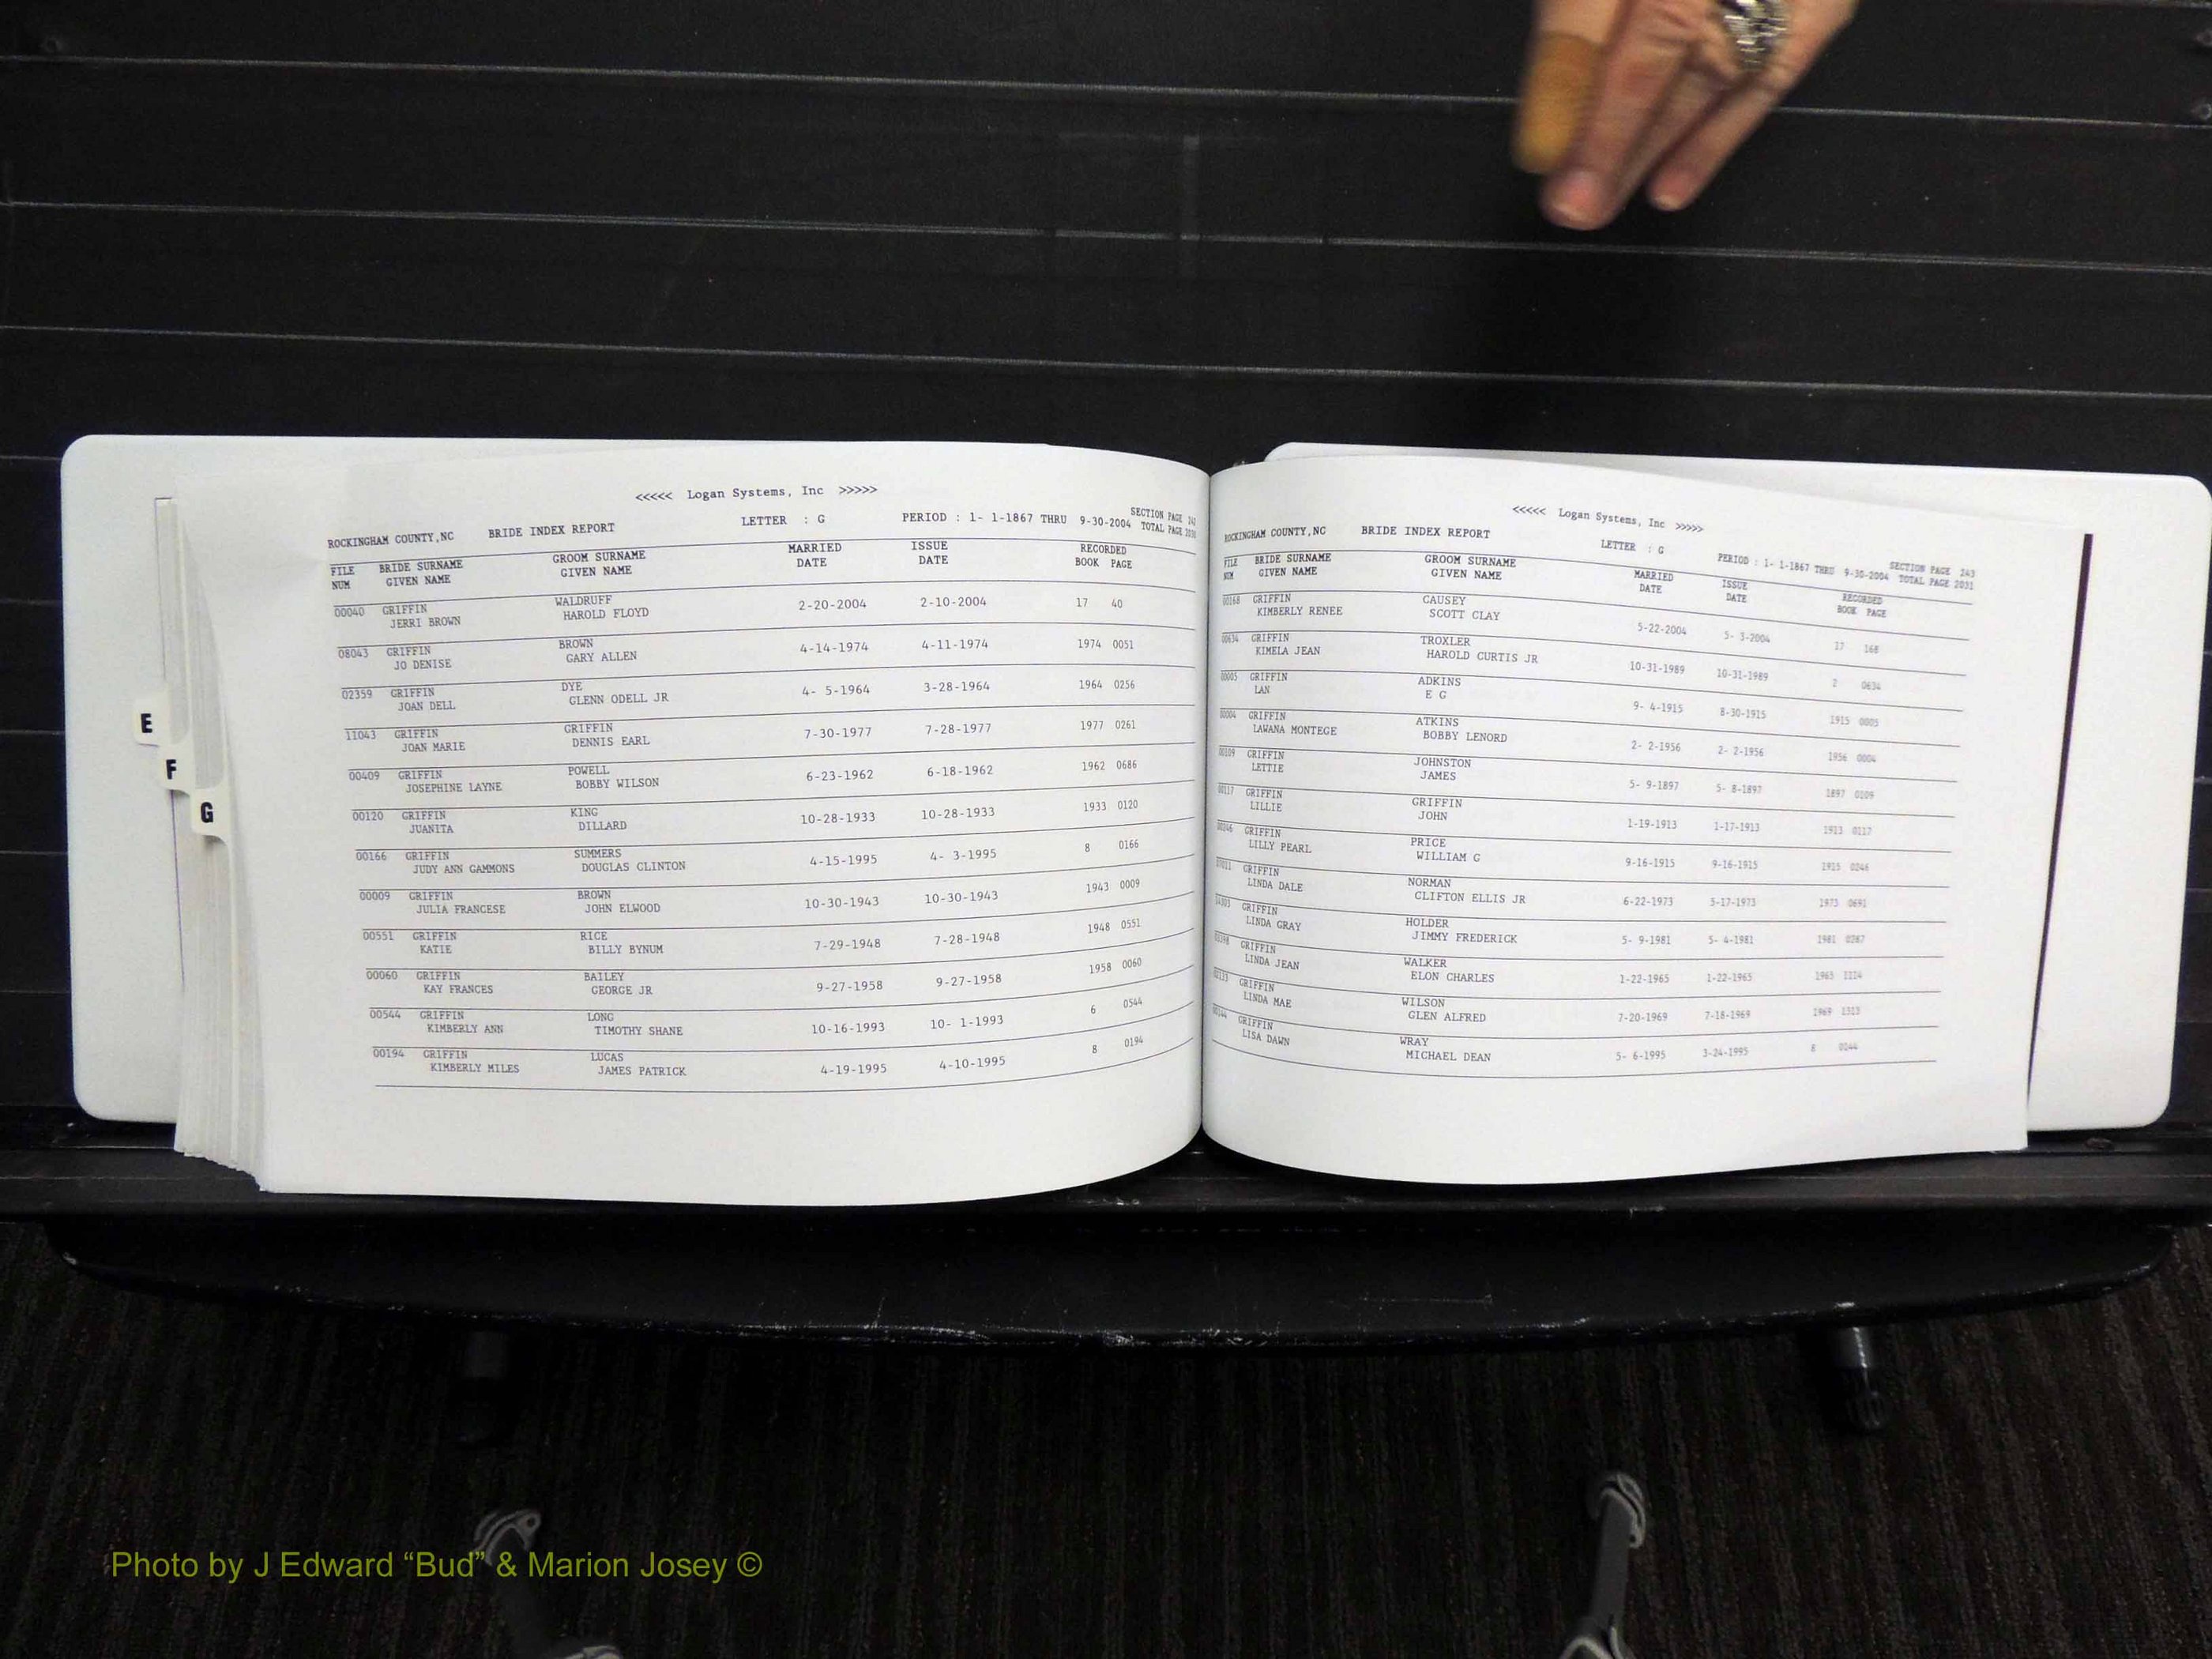 <<<<< Logan Systems, Inc >>>>>
ROCKINGHAM COUNTY,NC BRIDE INDEX REPORT LETTER : G PERIOD : 1- 1-1867 THRU 9-30-2004 SECTION PAGE
TOTAL PAGE
FILE BRIDE SURNAME GROOM SURNAME MARRIED ISSUE RECORDED
NUM GIVEN NAME GIVEN NAME DATE DATE BOOK PAGE
00040 GRIFFIN WALDRUFF 2-20-2004 2-10-2004 17 40
JERRI BROWN HAROLD FLOYD
08043 GRIFFIN BROWN 4-14-1974 4-11-1974 1974 0051
JO DENISE GARY ALLEN
02359 GRIFFIN DYE 4- 5-1964 3-28-1964 1964 0256
JOAN DELL GLENN ODELL JR
11043 GRIFFIN GRIFFIN 7-30-1977 7-28-1977 1977 0261
JOAN MARIE DENNIS EARL
00409 GRIFFIN POWELL 6-23-1962 6-18-1962 1962 0686
JOSEPHINE LAYNE BOBBY WILSON
00120 GRIFFIN KING 10-28-1933 10-28-1933 1933 0120
JUANITA DILLARD
00166 GRIFFIN SUMMERS 4-15-1995 4- 3-1995 8 0166
JUDY ANN GAMMONS DOUGLAS CLINTON
00009 GRIFFIN BROWN 10-30-1943 10-30-1943 1943 0009
JULIA FRANCESE JOHN ELWOOD
00551 GRIFFIN RICE 7-29-1948 7-28-1948 1948 0551
KATIE BILLY BYNUM
00060 GRIFFIN BAILEY 9-27-1958 9-27-1958 1958 0060
KAY FRANCES GEORGE JR
00544 GRIFFIN LONG 10-16-1993 10- 1-1993 6 0544
KIMBERLY ANN TIMOTHY SHANE
00194 GRIFFIN LUCAS 4-19-1995 4-10-1995 8 0194
KIMBERLY MILES JAMES PATRICK
E
F
G
<<<<< Logan Systems, Inc >>>>>
ROCKINGHAM COUNTY,NC BRIDE INDEX REPORT LETTER : G PERIOD : 1- 1-1867 THRU 9-30-2004 SECTION PAGE 243
TOTAL PAGE 2031
FILE BRIDE SURNAME GROOM SURNAME MARRIED ISSUE RECORDED
NUM GIVEN NAME GIVEN NAME DATE DATE BOOK PAGE
00168 GRIFFIN CAUSEY 5-22-2004 5- 3-2004 17 168
KIMBERLY RENEE SCOTT CLAY
00634 GRIFFIN TROXLER 10-31-1989 10-31-1989 2 0634
KIMELA JEAN HAROLD CURTIS JR
00005 GRIFFIN ADKINS 9- 4-1915 8-30-1915 1915 0005
LAN E G
00004 GRIFFIN ATKINS 2- 2-1956 2- 2-1956 1956 0004
LAWANA MONTEGE BOBBY LENORD
00109 GRIFFIN JOHNSTON 5- 9-1897 5- 8-1897 1897 0109
LETTIE JAMES
00117 GRIFFIN GRIFFIN 1-19-1913 1-17-1913 1913 0117
LILLIE JOHN
GRIFFIN PRICE 9-16-1915 9-16-1915 1915
LILLY PEARL WILLIAM G
GRIFFIN NORMAN 6-22-1973 5-17-1973 1973 0691
LINDA DALE CLIFTON ELLIS JR
GRIFFIN HOLDER 5- 9-1981 5- 4-1981 1981
LINDA GRAY JIMMY FREDERICK
GRIFFIN WALKER 1-22-1965 1-22-1965 1965
LINDA JEAN ELON CHARLES
GRIFFIN WILSON 7-20-1969 7-18-1969 1969 1313
LINDA MAE GLEN ALFRED
GRIFFIN WRAY 5- 6-1995 3-24-1995 8
LISA DAWN MICHAEL DEAN
Photo by J Edward “Bud” & Marion Josey ©